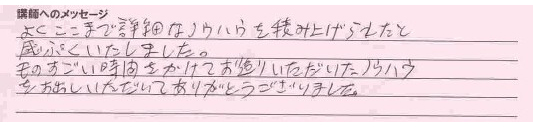 講師へのメッセージ
よくここまで詳細なノウハウを積み上げられたと
感ぷくいたしました。
ものすごい時間をかけてお造りいただいたノウハウ
をお出しいただいてありがとうございました。